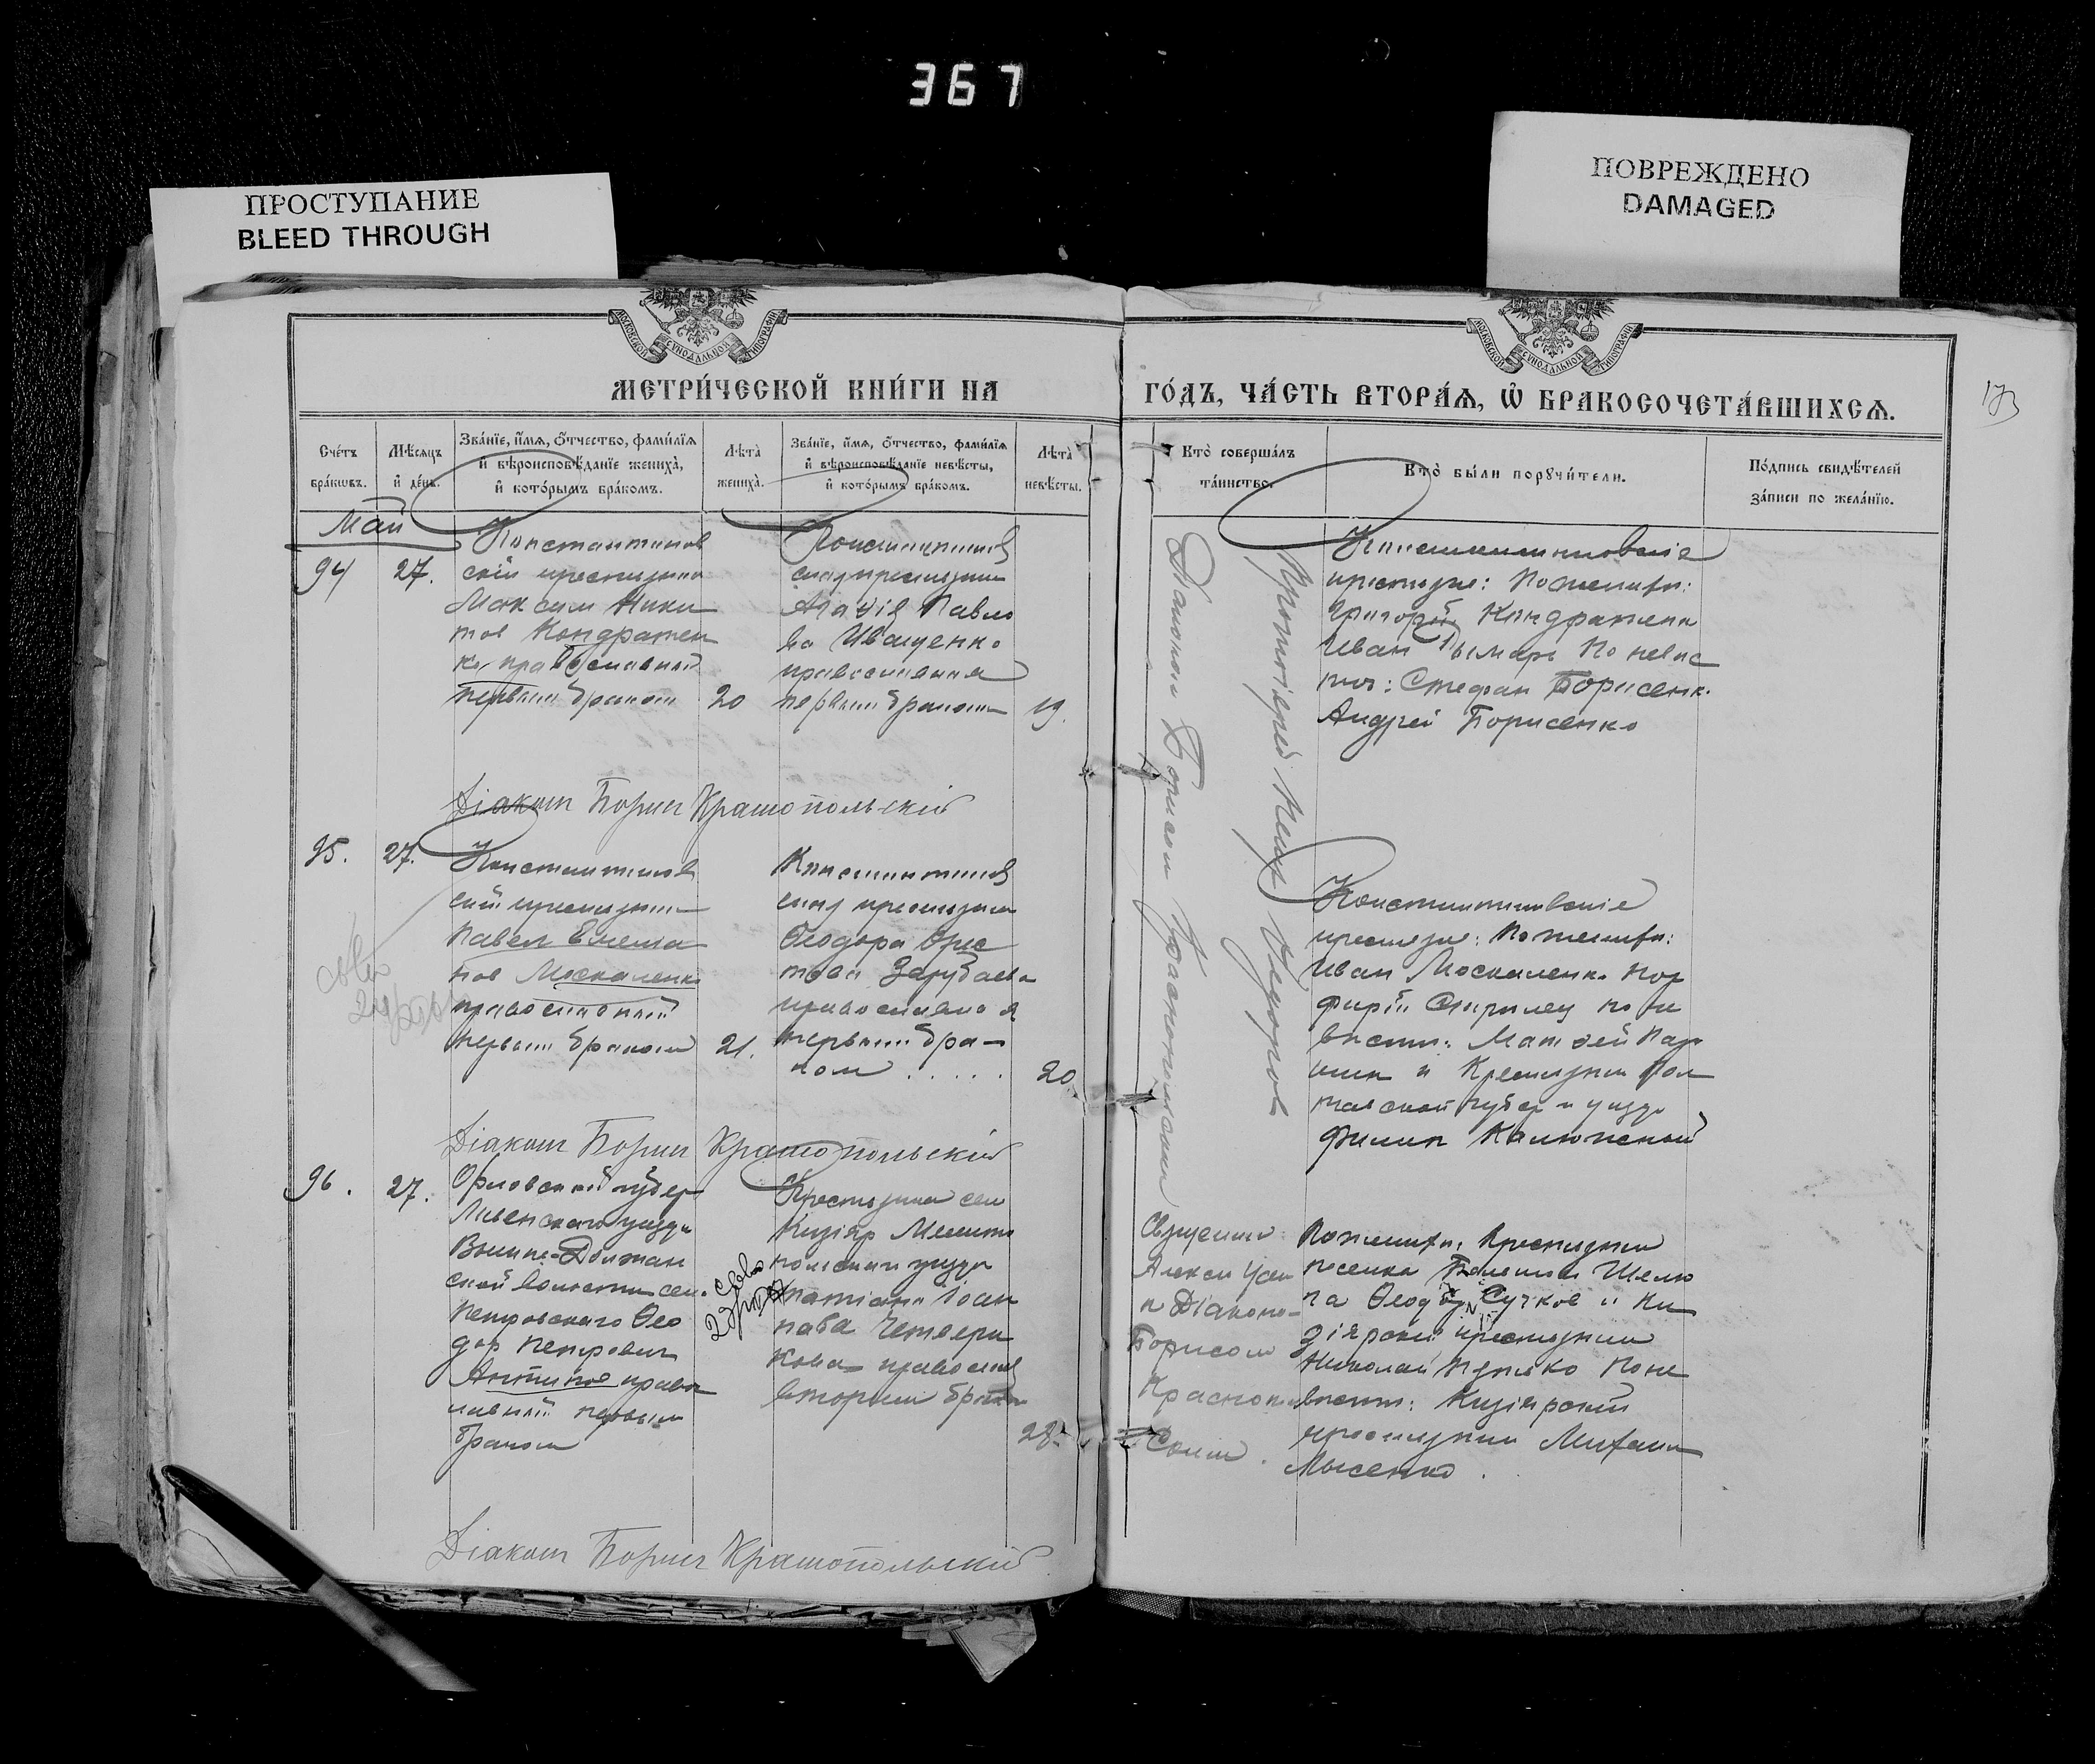 367
ПРОСТУПАНИЕ
BLEED THROUGH
ПОВРЕЖДЕНО
DAMAGED
МОСКОВСКОЙ СѴНОДАЛЬНОЙ ТИПОГРАФІИ
МОСКОВСКОЙ СѴНОДАЛЬНОЙ ТИПОГРАФІИ
МЕТРИ́ЧЕСКОЙ КНИ́ГИ НА
ГО́ДЪ, ЧА́СТЬ ВТОРА́Ѧ, Ѡ҆ БРАКОСОЧЕТА́ВШИХСѦ.
173
Сче́тъ бра́кѡвъ.
Мѣ́сяцъ и҆ де́нь.
Зва́нїе, и҆́мѧ, ѻ҆́тчество, фами́лїѧ
и҆ вѣроисповѣ́данїе жениха̀,
и҆ кото́рымъ бра́комъ.
Лѣта̀ жениха̀.
Зва́нїе, и҆́мѧ, ѻ҆́тчество, фами́лїѧ
и҆ вѣроисповѣ́данїе невѣ́сты,
и҆ кото́рымъ бра́комъ.
Лѣта̀ невѣ́сты.
Кто̀ соверша́лъ та́инство.
Кто̀ бы́ли порꙋчи́тели.
По́дпись свидѣ́телей
за́писи по жела́нїю.
Май
94
27.
Константинов
скій крестьянин
Максим Ники
тов Кондратен
ко, православный
первым браком
20
Константинов
ская крестьянка
Агафія Павло
ва Иващенко
православная
первым браком
19.
Константиновскіе
крестьяне: По женихе:
Григорій Кондратенко
Иван Пымарь По невес
те: Стефан Борисенко
Андрей Борисенко
Діакон Борис Краснопольскій
95.
27.
Константинов
скій крестьянин
Павел Емелья
нов Москаленко
православный
первым браком
21.
Константинов
ская крестьянка
Ѳеодора
Зарубаева
православная
первым бра-
ком . . . . .
20
Константиновскіе
крестьяне: По женихе:
Иван Москаленко Пор
фирій по не
весте: Матвей
и Крестьянин Пол
тавской губер и уезда
Филип
Діакон Борис Краснопольскій
96.
27.
Орловской губер
Ливенскаго уезда
Вышне-Должан
ской волости села
Петровскаго Ѳео
дор Петрович
Антипов правос
лавный первым
браком
Крестьянка села
Кизіяр Мелито
польскаго уезда
Татіана Іоан
нова Четвери
кова православ
вторым браком
28.
Священник
Алексей
и Діаконом
Борисом
Краснополь
ским.
По женихе: Крестьянин
поселка
Ѳеодор Сучков и Ки
зіярскій крестьянин
Николай По не
весте: Кизіярскій
крестьянин Михаил
Лысенко.
Діаконом Борисом Краснопольским
Протоіерей
Діакон Борис Краснопольскій